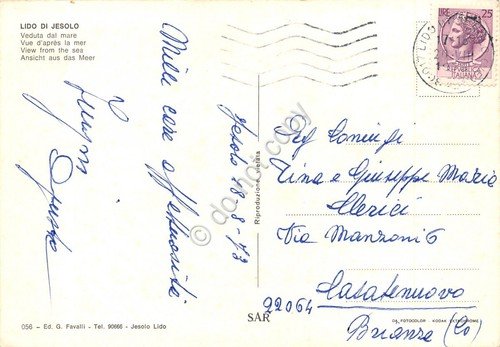 LIDO DI JESOLO
Veduta dal mare
Vue d'après la mer
View from the sea
Ansicht aus das Meer
Mille care affettuosità
Jesolo 28-8-73
Luigi
Riproduzione vietata
do not copy
LIRE 25
REPUBBLICA
ITALIANA
LIDO
Coniugi
Tina e Giuseppe Maria
Clerici
Via Manzoni 6
22064
Casatenuovo
Brianza (Co)
SAR
056 – Ed. G. Favalli – Tel. 90666 – Jesolo Lido
DA FOTOCOLOR KODAK EKTACHROME